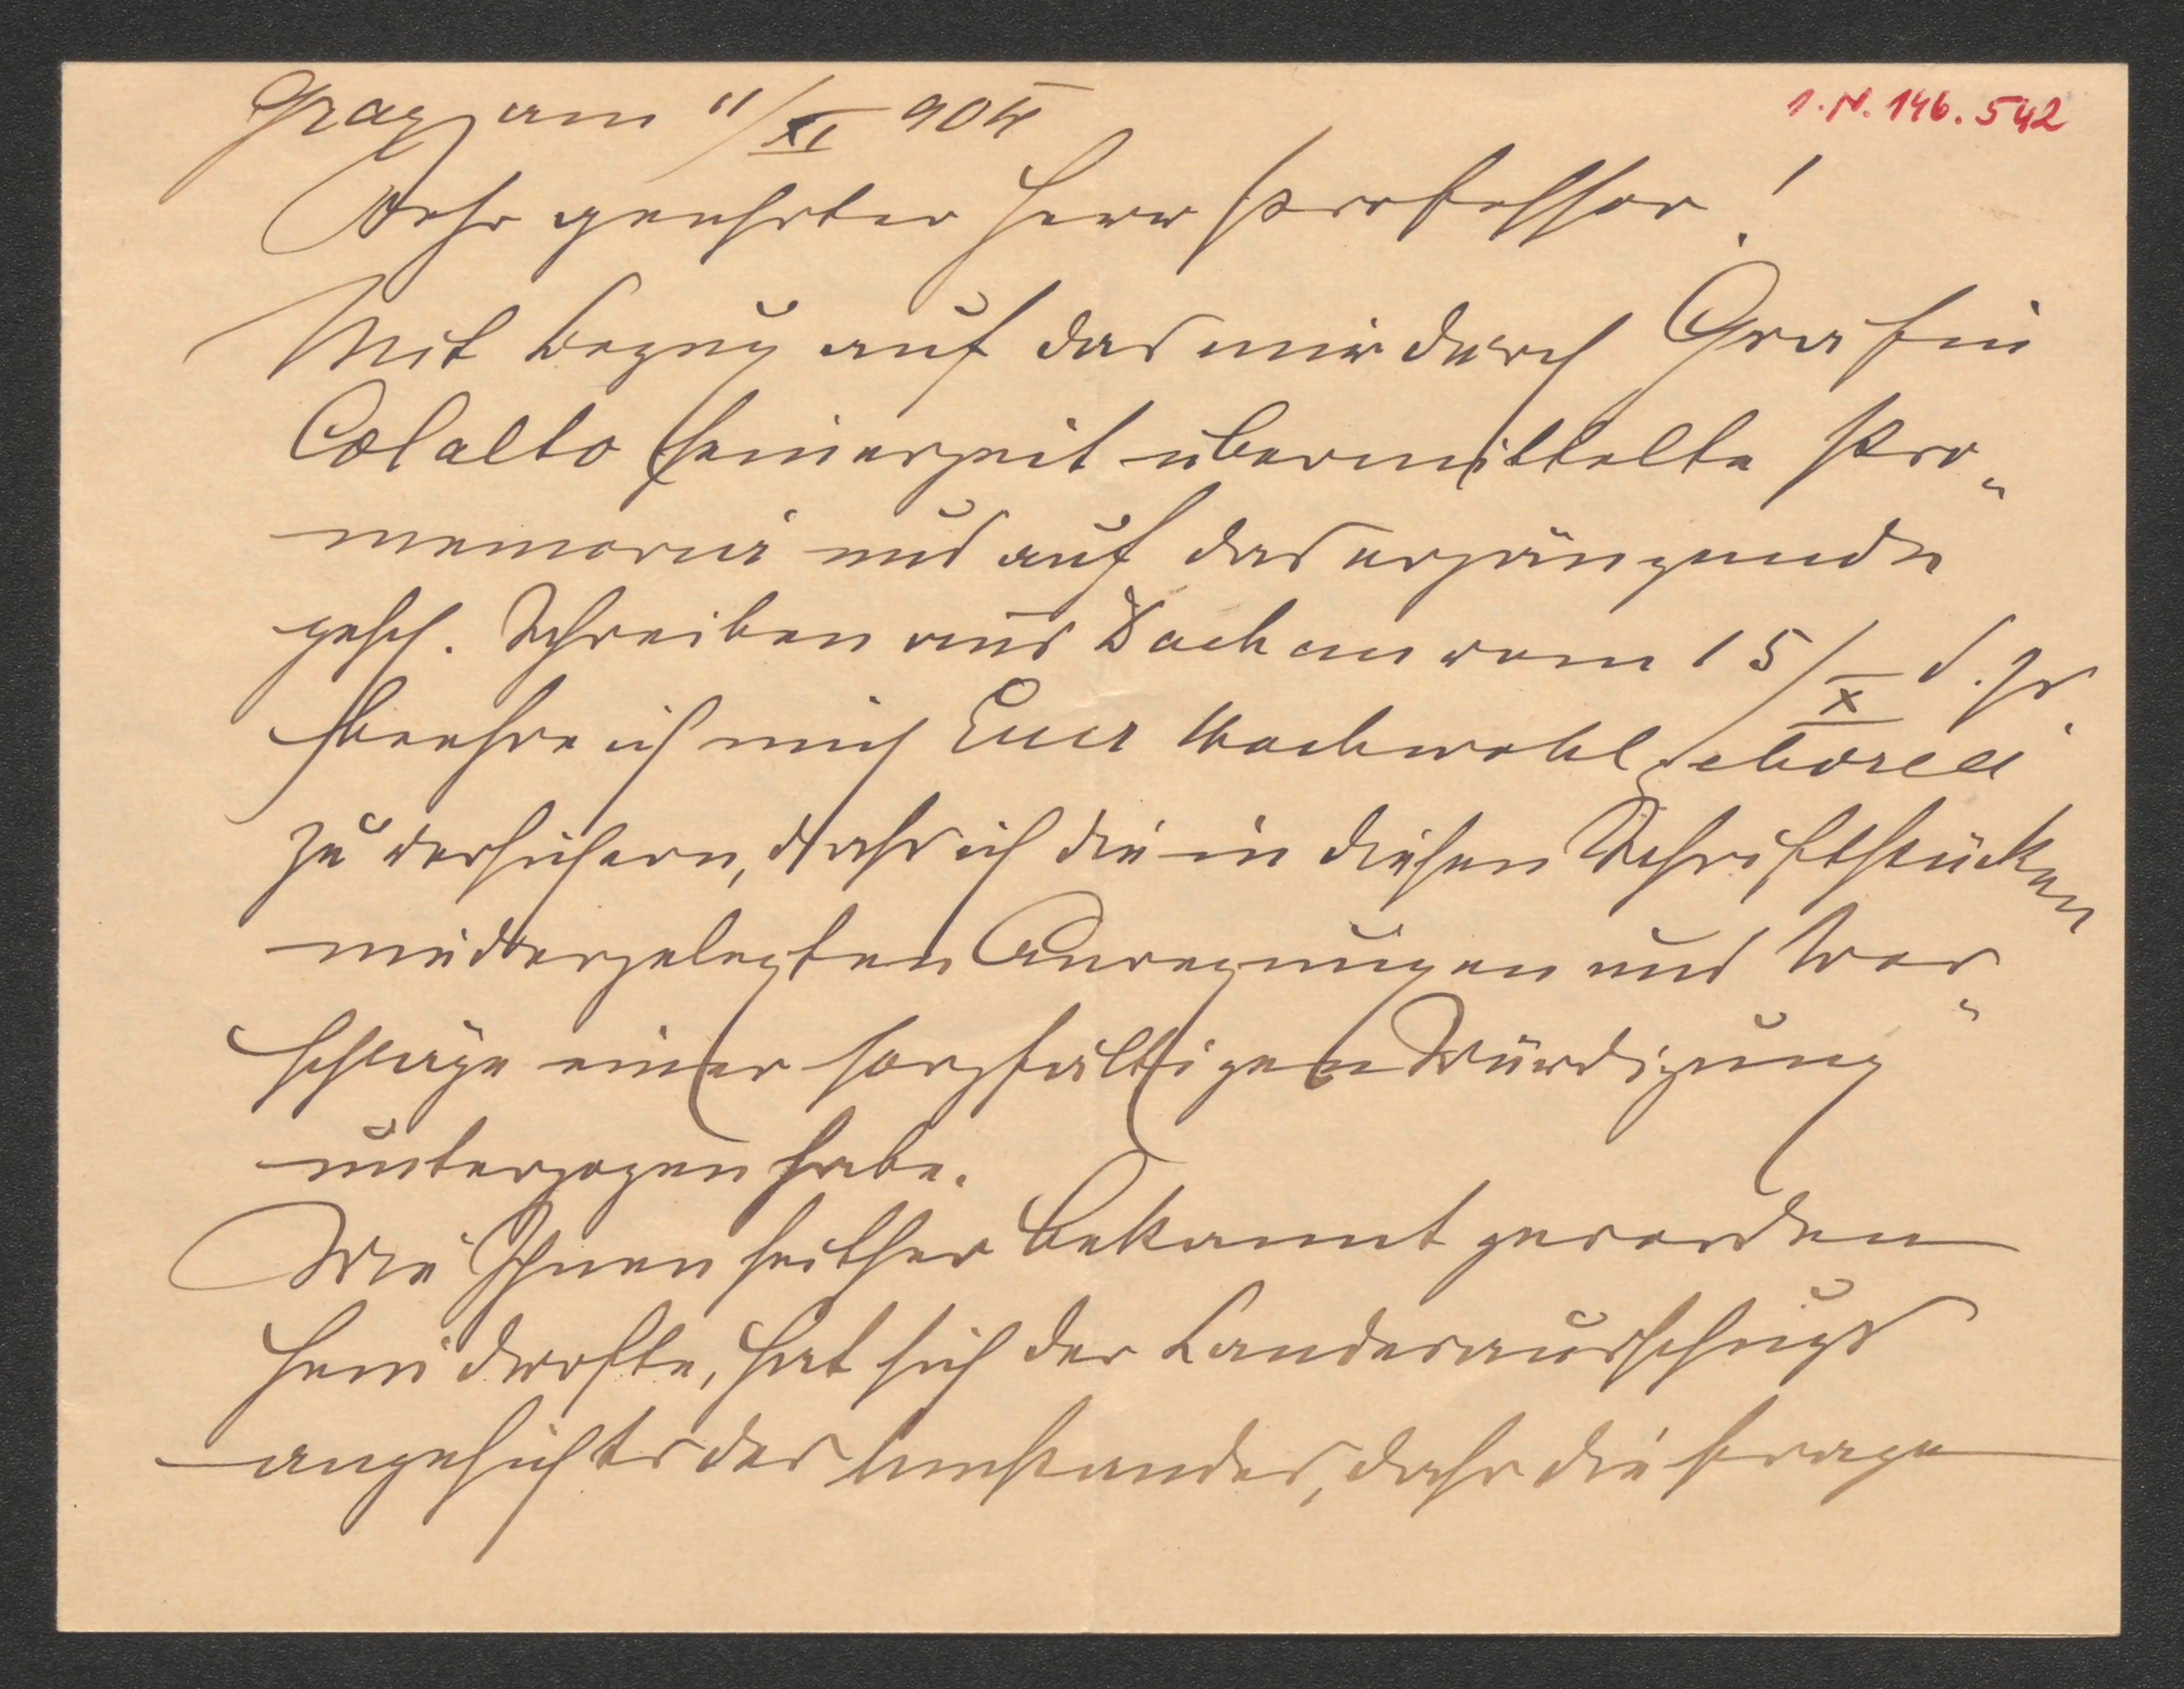 Graz am 11/XI 904
I.N. 146.542
Sehr geehrter Herr Professor!
Mit Bezug auf das mir durch Gräfin
Colalto seinerzeit übermittelte Pro-
memoria und auf das ergänzende
gesch. Schreiben aus Dachau vom 15/X d. Js.
beehre ich mich Euer Hochwohlgeboren
zu versichern, dass ich die in diesen Schriftstücken
niedergelegten Anregungen und Vor-
schläge einer sorgfältigen Würdigung
unterzogen habe.
Wie Ihnen seither bekannt geworden
sein dürfte, hat sich der Landesausschuss
angesichts des Umstandes, dass die Frage